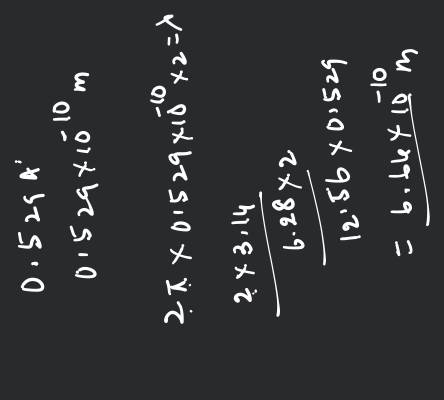 0.529 A°
0.529 × 10⁻¹⁰ m
2π × 0.529 × 10⁻¹⁰ × 2 = λ
2 × 3.14
6.28 × 2
12.56 × 0.529
= 6.64 × 10⁻¹⁰ m